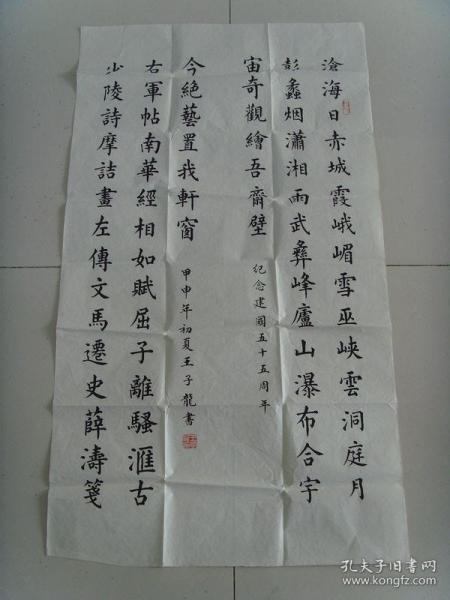 滄海日赤城霞峨嵋雪巫峽雲洞庭月
彭蠡烟瀟湘雨武彝峰廬山瀑布合宇
宙奇觀繪吾齋壁
紀念建國五十五周年
少陵詩摩詰畫左傳文馬遷史薛濤箋
右軍帖南華經相如賦屈子離騷滙古
今絕藝置我軒窗
甲申年初夏王子龍書
孔夫子旧书网
www.kongfz.com